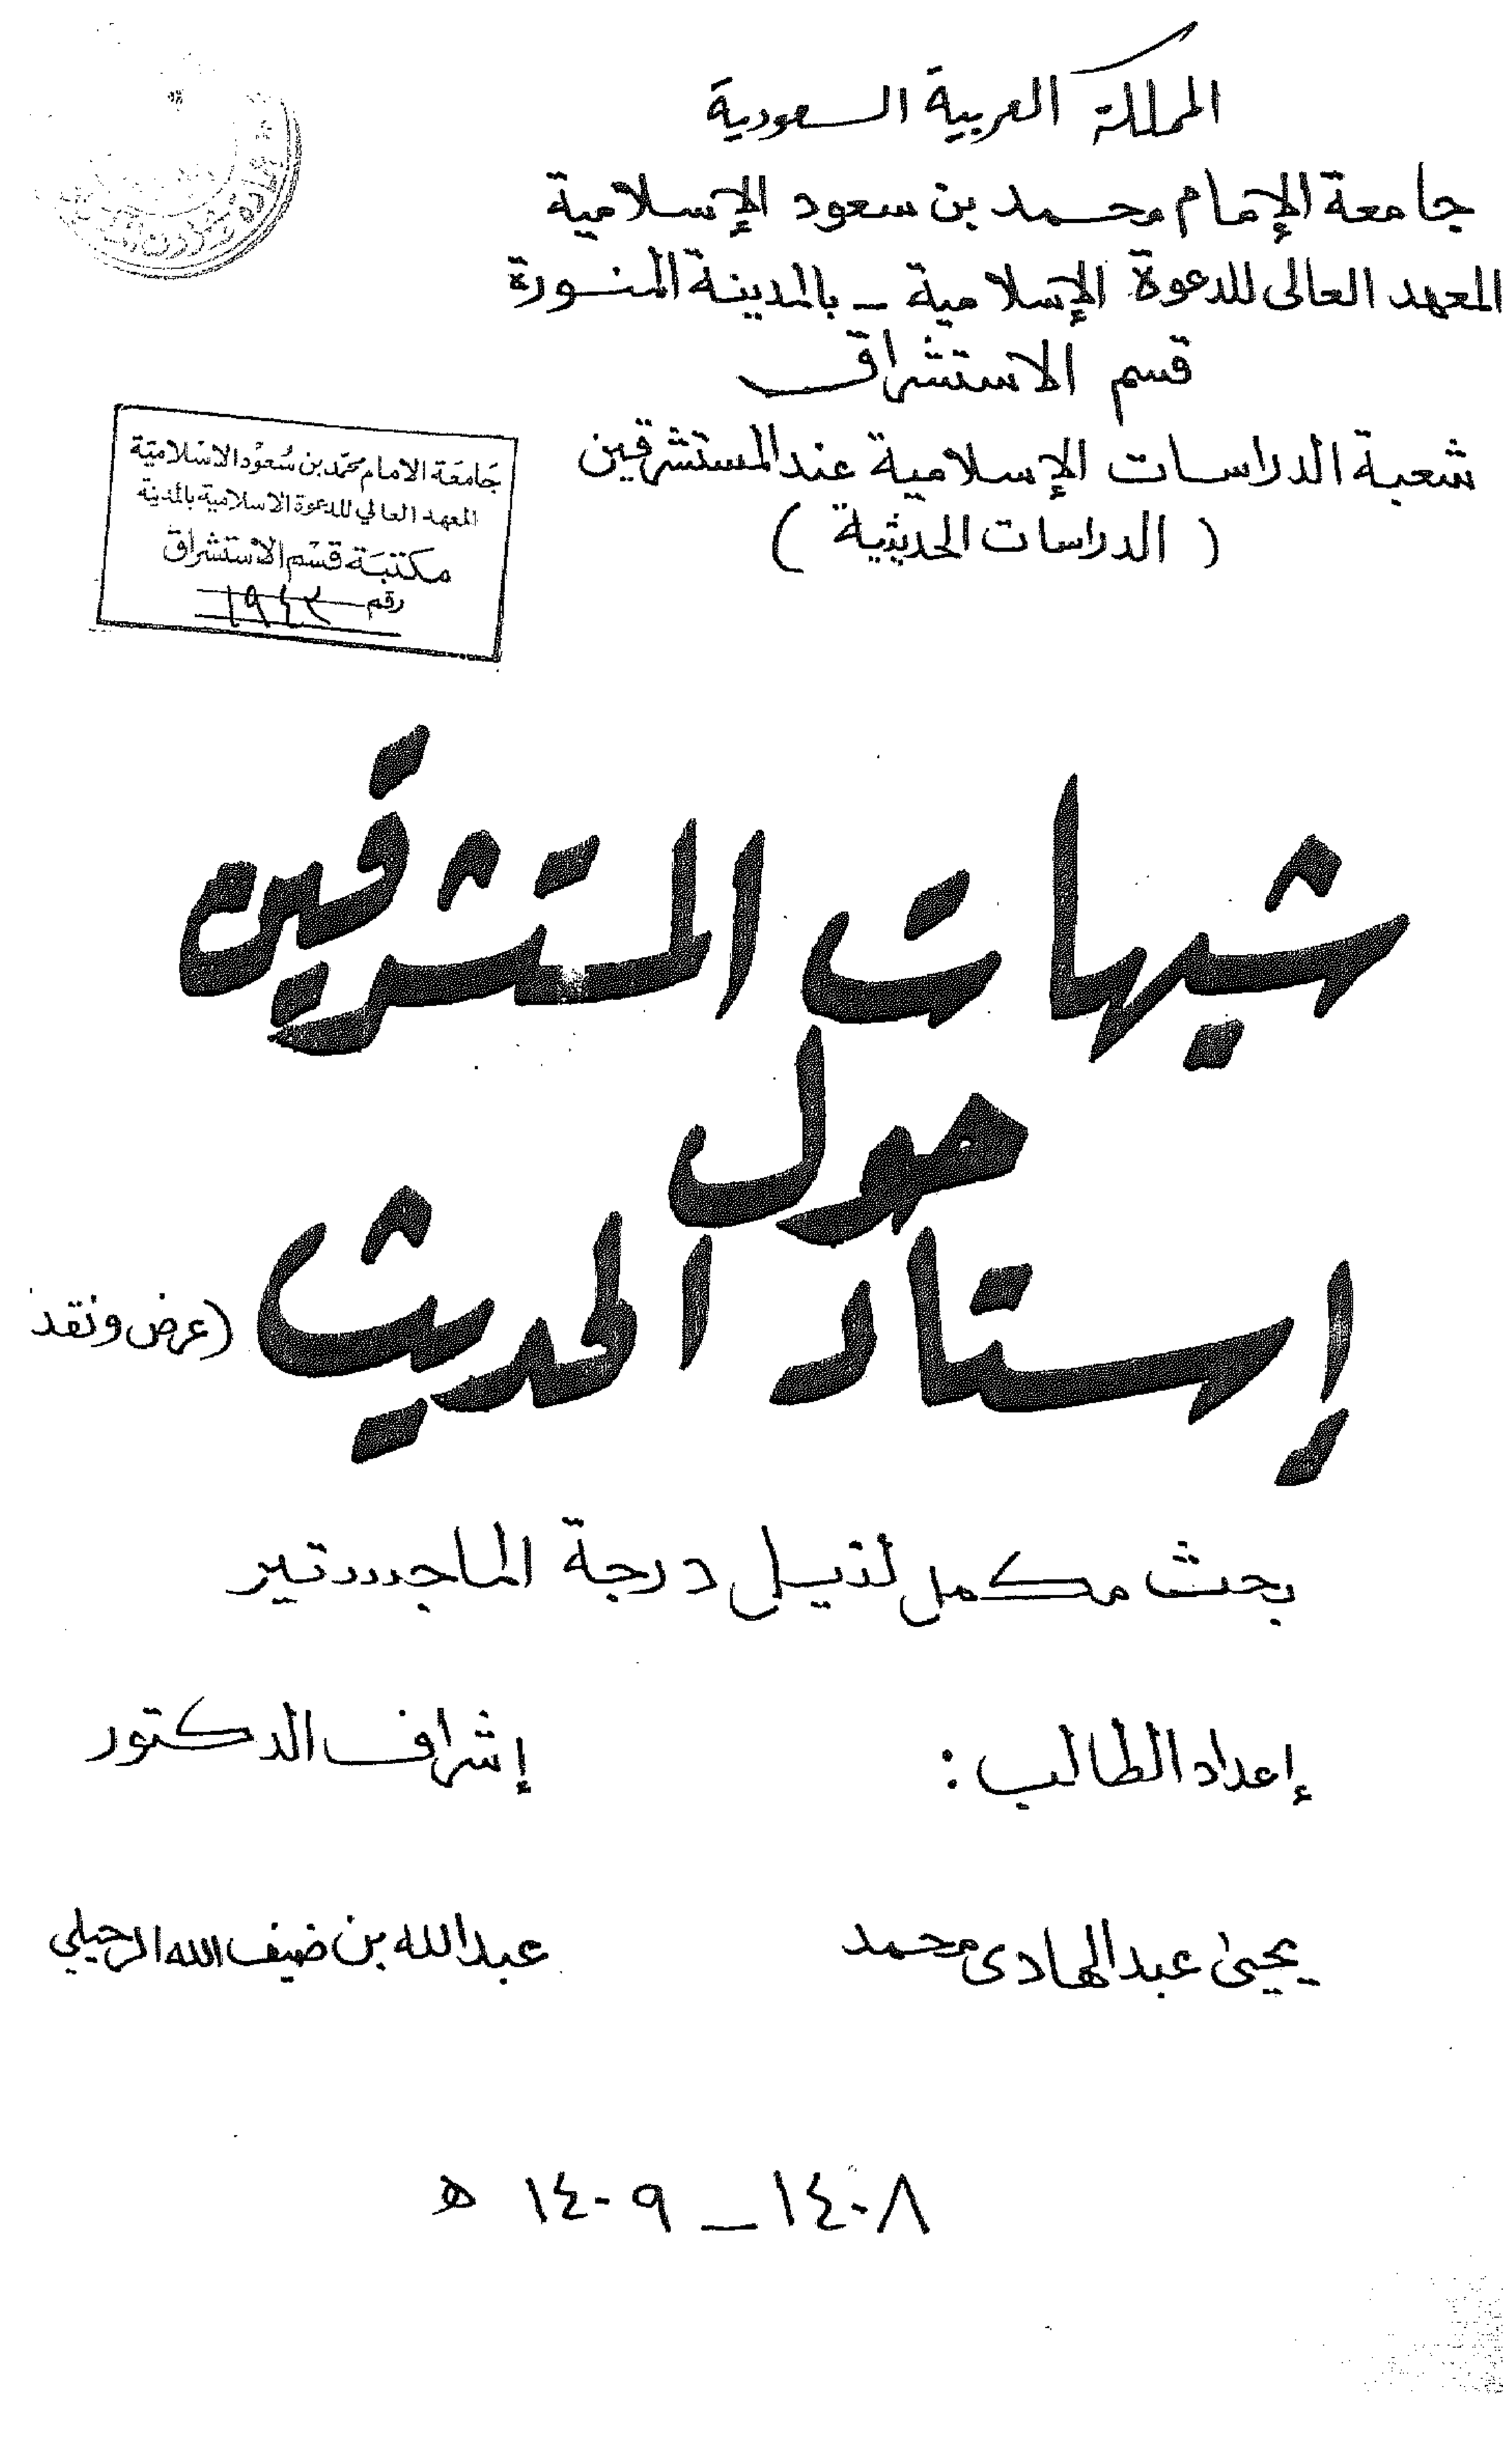 المملكة العربية السعودية
جامعة الإمام محمد بن سعود الإسلامية
المعهد العالى للدعوة الإسلامية - بالمدينة المنورة
قسم الاستشراق
شعبة الدراسات الإسلامية عند المستشرقين
( الدراسات الحديثية )
جَامعَة الامَام محمّد بن سُعوُد الاسْلاميّة
المعهد العالي للدعوة الاسلامية بالمدينة
مكتبَة قسْم الاسْتشراق
رقم ١٩٤٢
شبهات المستشرقين
حول
إسناد الحديث (عرض ونقد
بحث مكمل لنيل درجة الماجستير
إعداد الطالب : إشراف الدكتور
يحيى عبد الهادى محمد عبد الله بن ضيف الله الرحيلي
١٤٠٨ - ١٤٠٩ ه